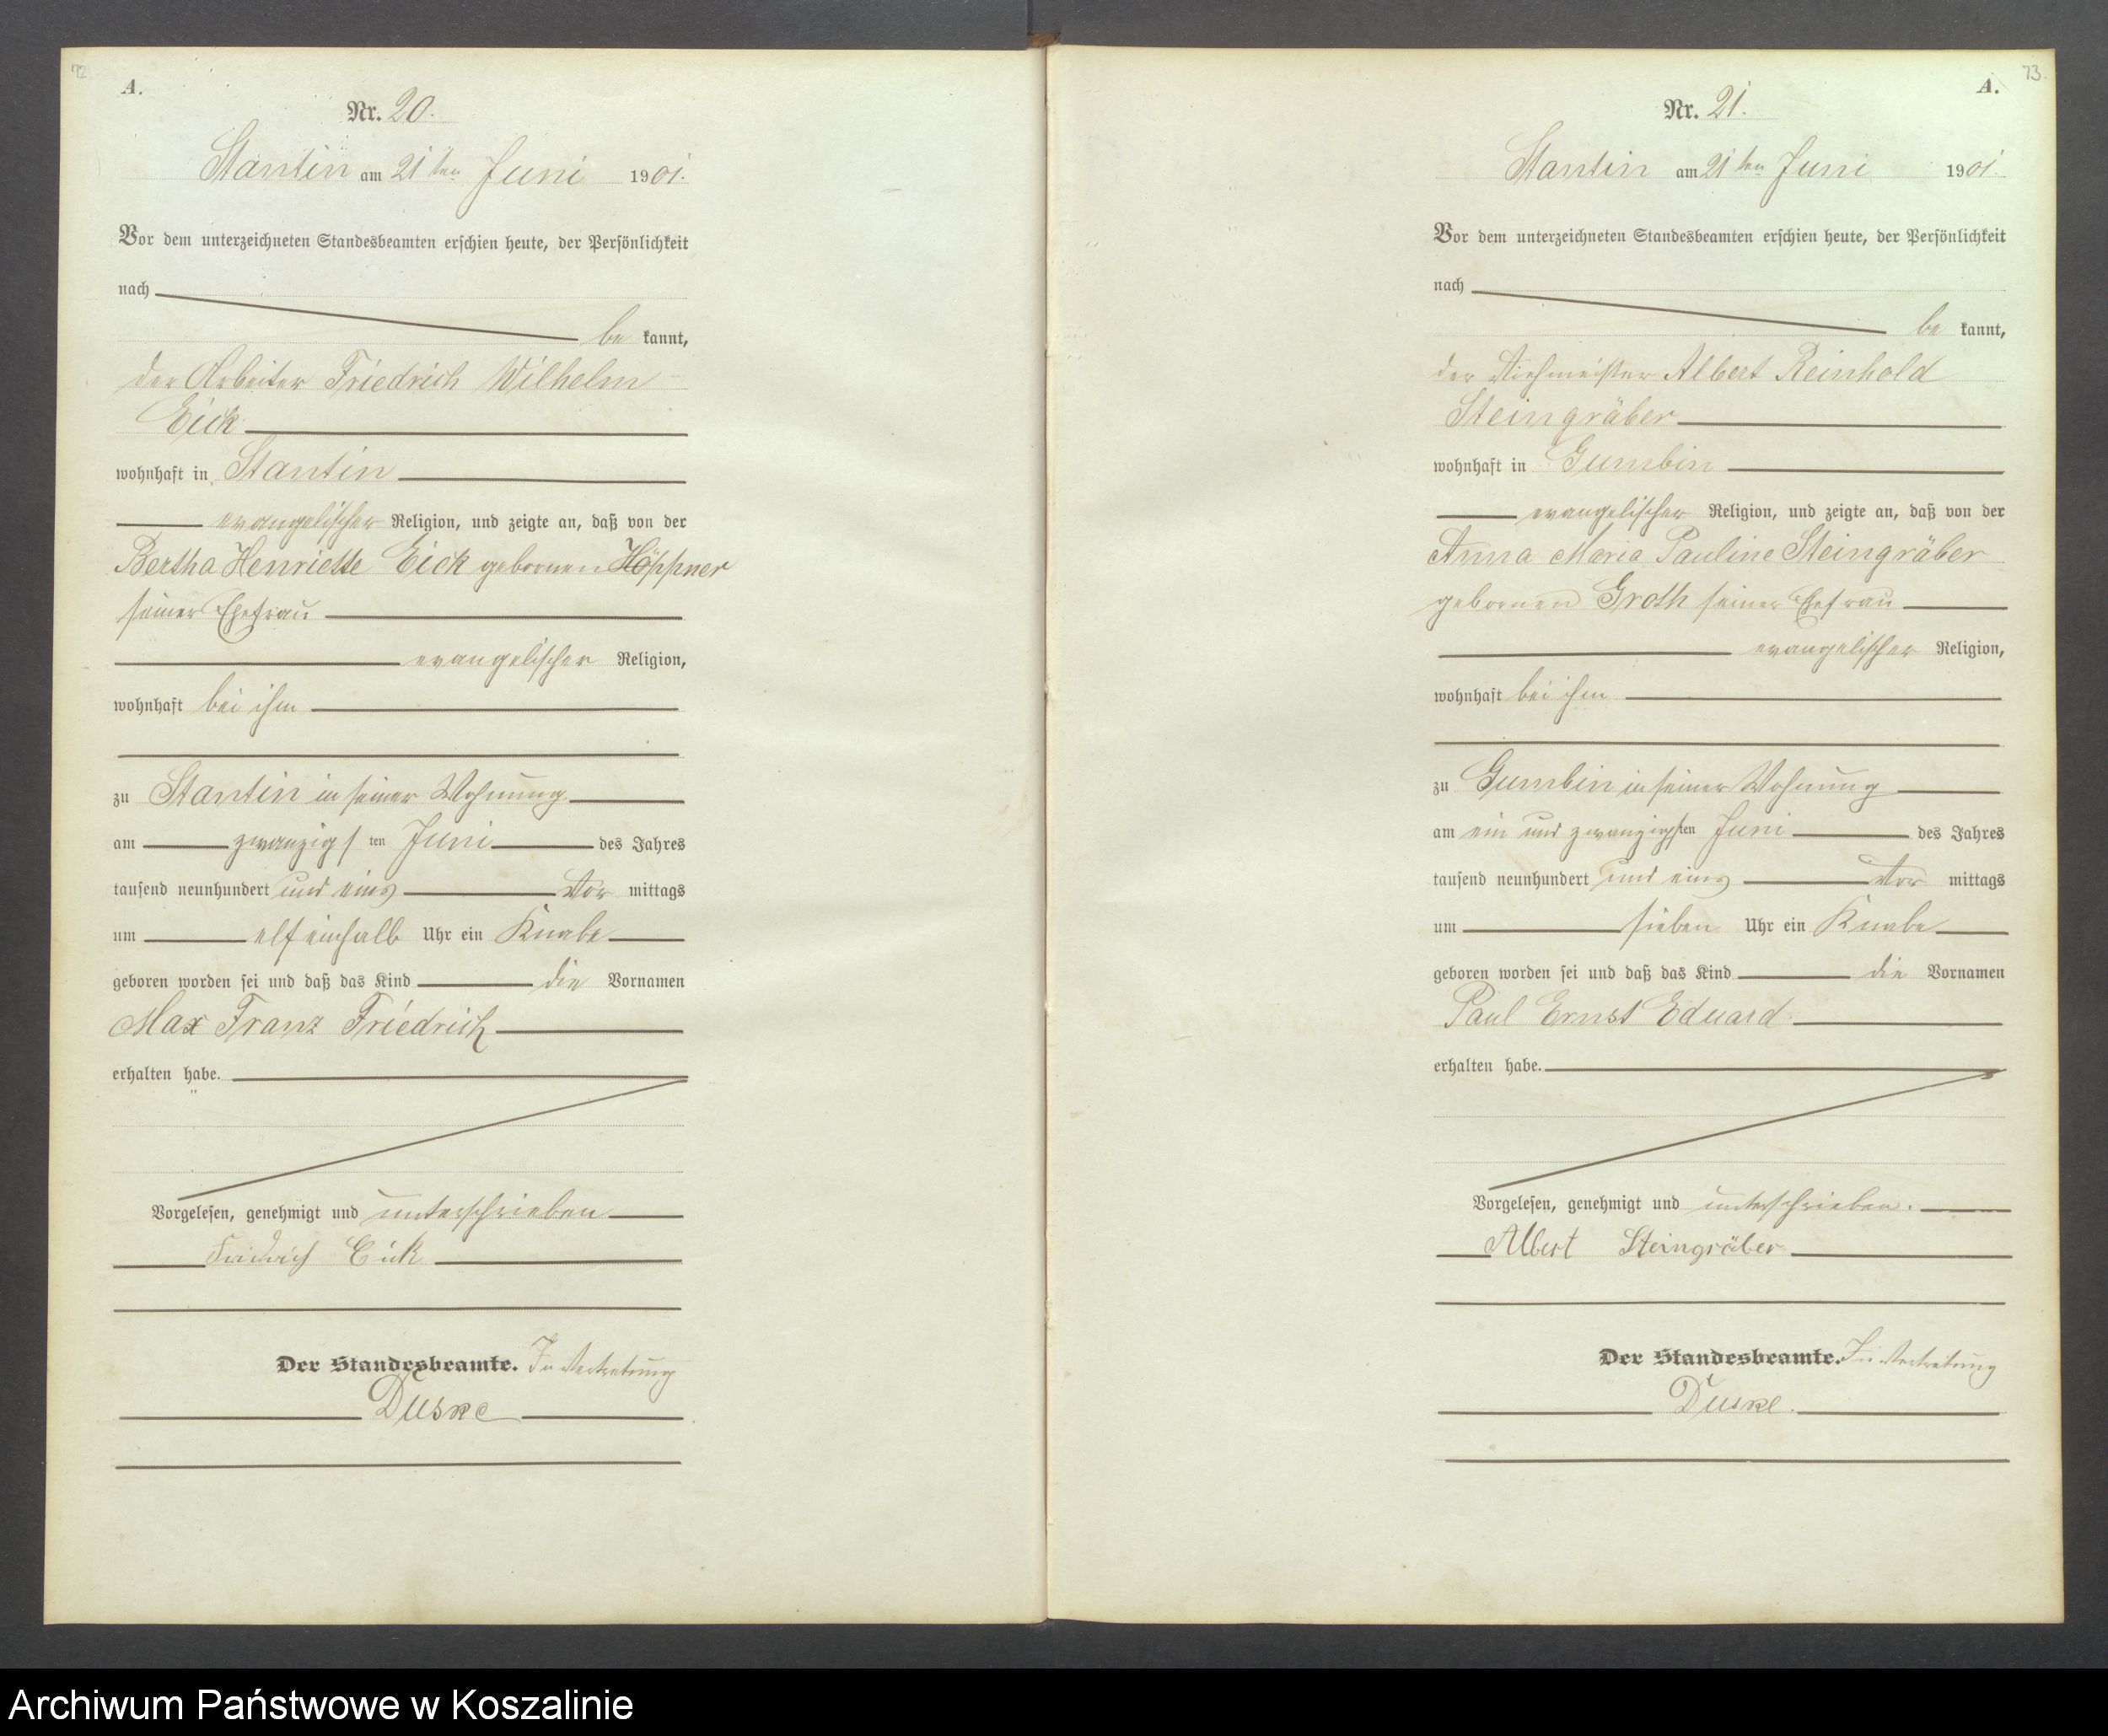 72.
A.
Nr. 20.
Stantin am 21 ten Juni 1901.
Vor dem unterzeichneten Standesbeamten erschien heute, der Persönlichkeit
nach
be kannt,
der Arbeiter Friedrich Wilhelm
Eick
wohnhaft in Stantin
evangelischer Religion, und zeigte an, daß von der
Bertha Henriette Eick geborenen Höppner
seiner Ehefrau
evangelischer Religion,
wohnhaft bei ihm
zu Stantin in seiner Wohnung
am zwanzigs ten Juni des Jahres
tausend neunhundert und eins Vor mittags
um elf einhalb Uhr ein Knabe
geboren worden sei und daß das Kind die Vornamen
Max Franz Friedrich
erhalten habe.
Vorgelesen, genehmigt und unterschrieben
Friedrich Eick
Der Standesbeamte. In Vertretung
Duske
73.
A.
Nr. 21.
Stantin am 21 ten Juni 1901.
Vor dem unterzeichneten Standesbeamten erschien heute, der Persönlichkeit
nach
be kannt,
der Albert Reinhold
Steingräber
wohnhaft in Gumbin
evangelischer Religion, und zeigte an, daß von der
Anna Maria Pauline Steingräber
geborenen Groth seiner Ehefrau
evangelischer Religion,
wohnhaft bei ihm
zu Gumbin in seiner Wohnung
am ein und zwanzigsten Juni des Jahres
tausend neunhundert und eins Vor mittags
um sieben Uhr ein Knabe
geboren worden sei und daß das Kind die Vornamen
Paul Ernst Eduard
erhalten habe.
Vorgelesen, genehmigt und unterschrieben.
Albert Steingräber
Der Standesbeamte. In Vertretung
Duske.
Archiwum Państwowe w Koszalinie